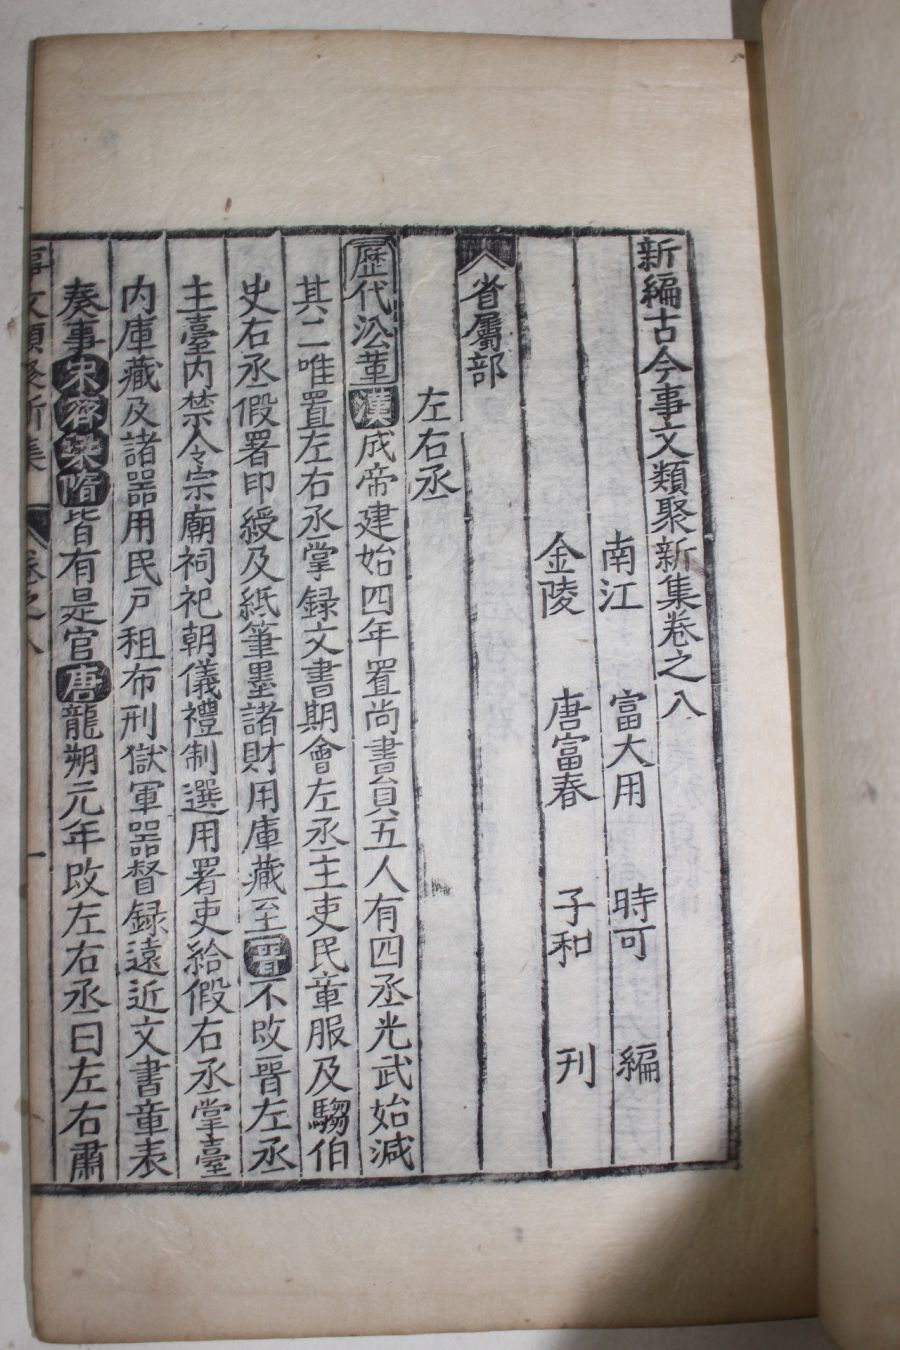 新編古今事文類聚新集卷之八
南江 富大用 時可 編
金陵 唐富春 子和 刊
省屬部
左右丞
歷代沿革漢成帝建始四年置尚書員五人有四丞光武始減
其二唯置左右丞掌録文書期會左丞主吏民章服及騶伯
史右丞假署印綬及紙筆墨諸財用庫藏至晉不改晉左丞
主臺内禁令宗廟祠祀朝儀禮制選用署吏給假右丞掌臺
内庫藏及諸器用民戸租布刑獄軍器督録遠近文書章表
奏事宋齊梁隋皆有是官唐龍朔元年改左右丞曰左右肅
事文類聚新集 卷之八 一